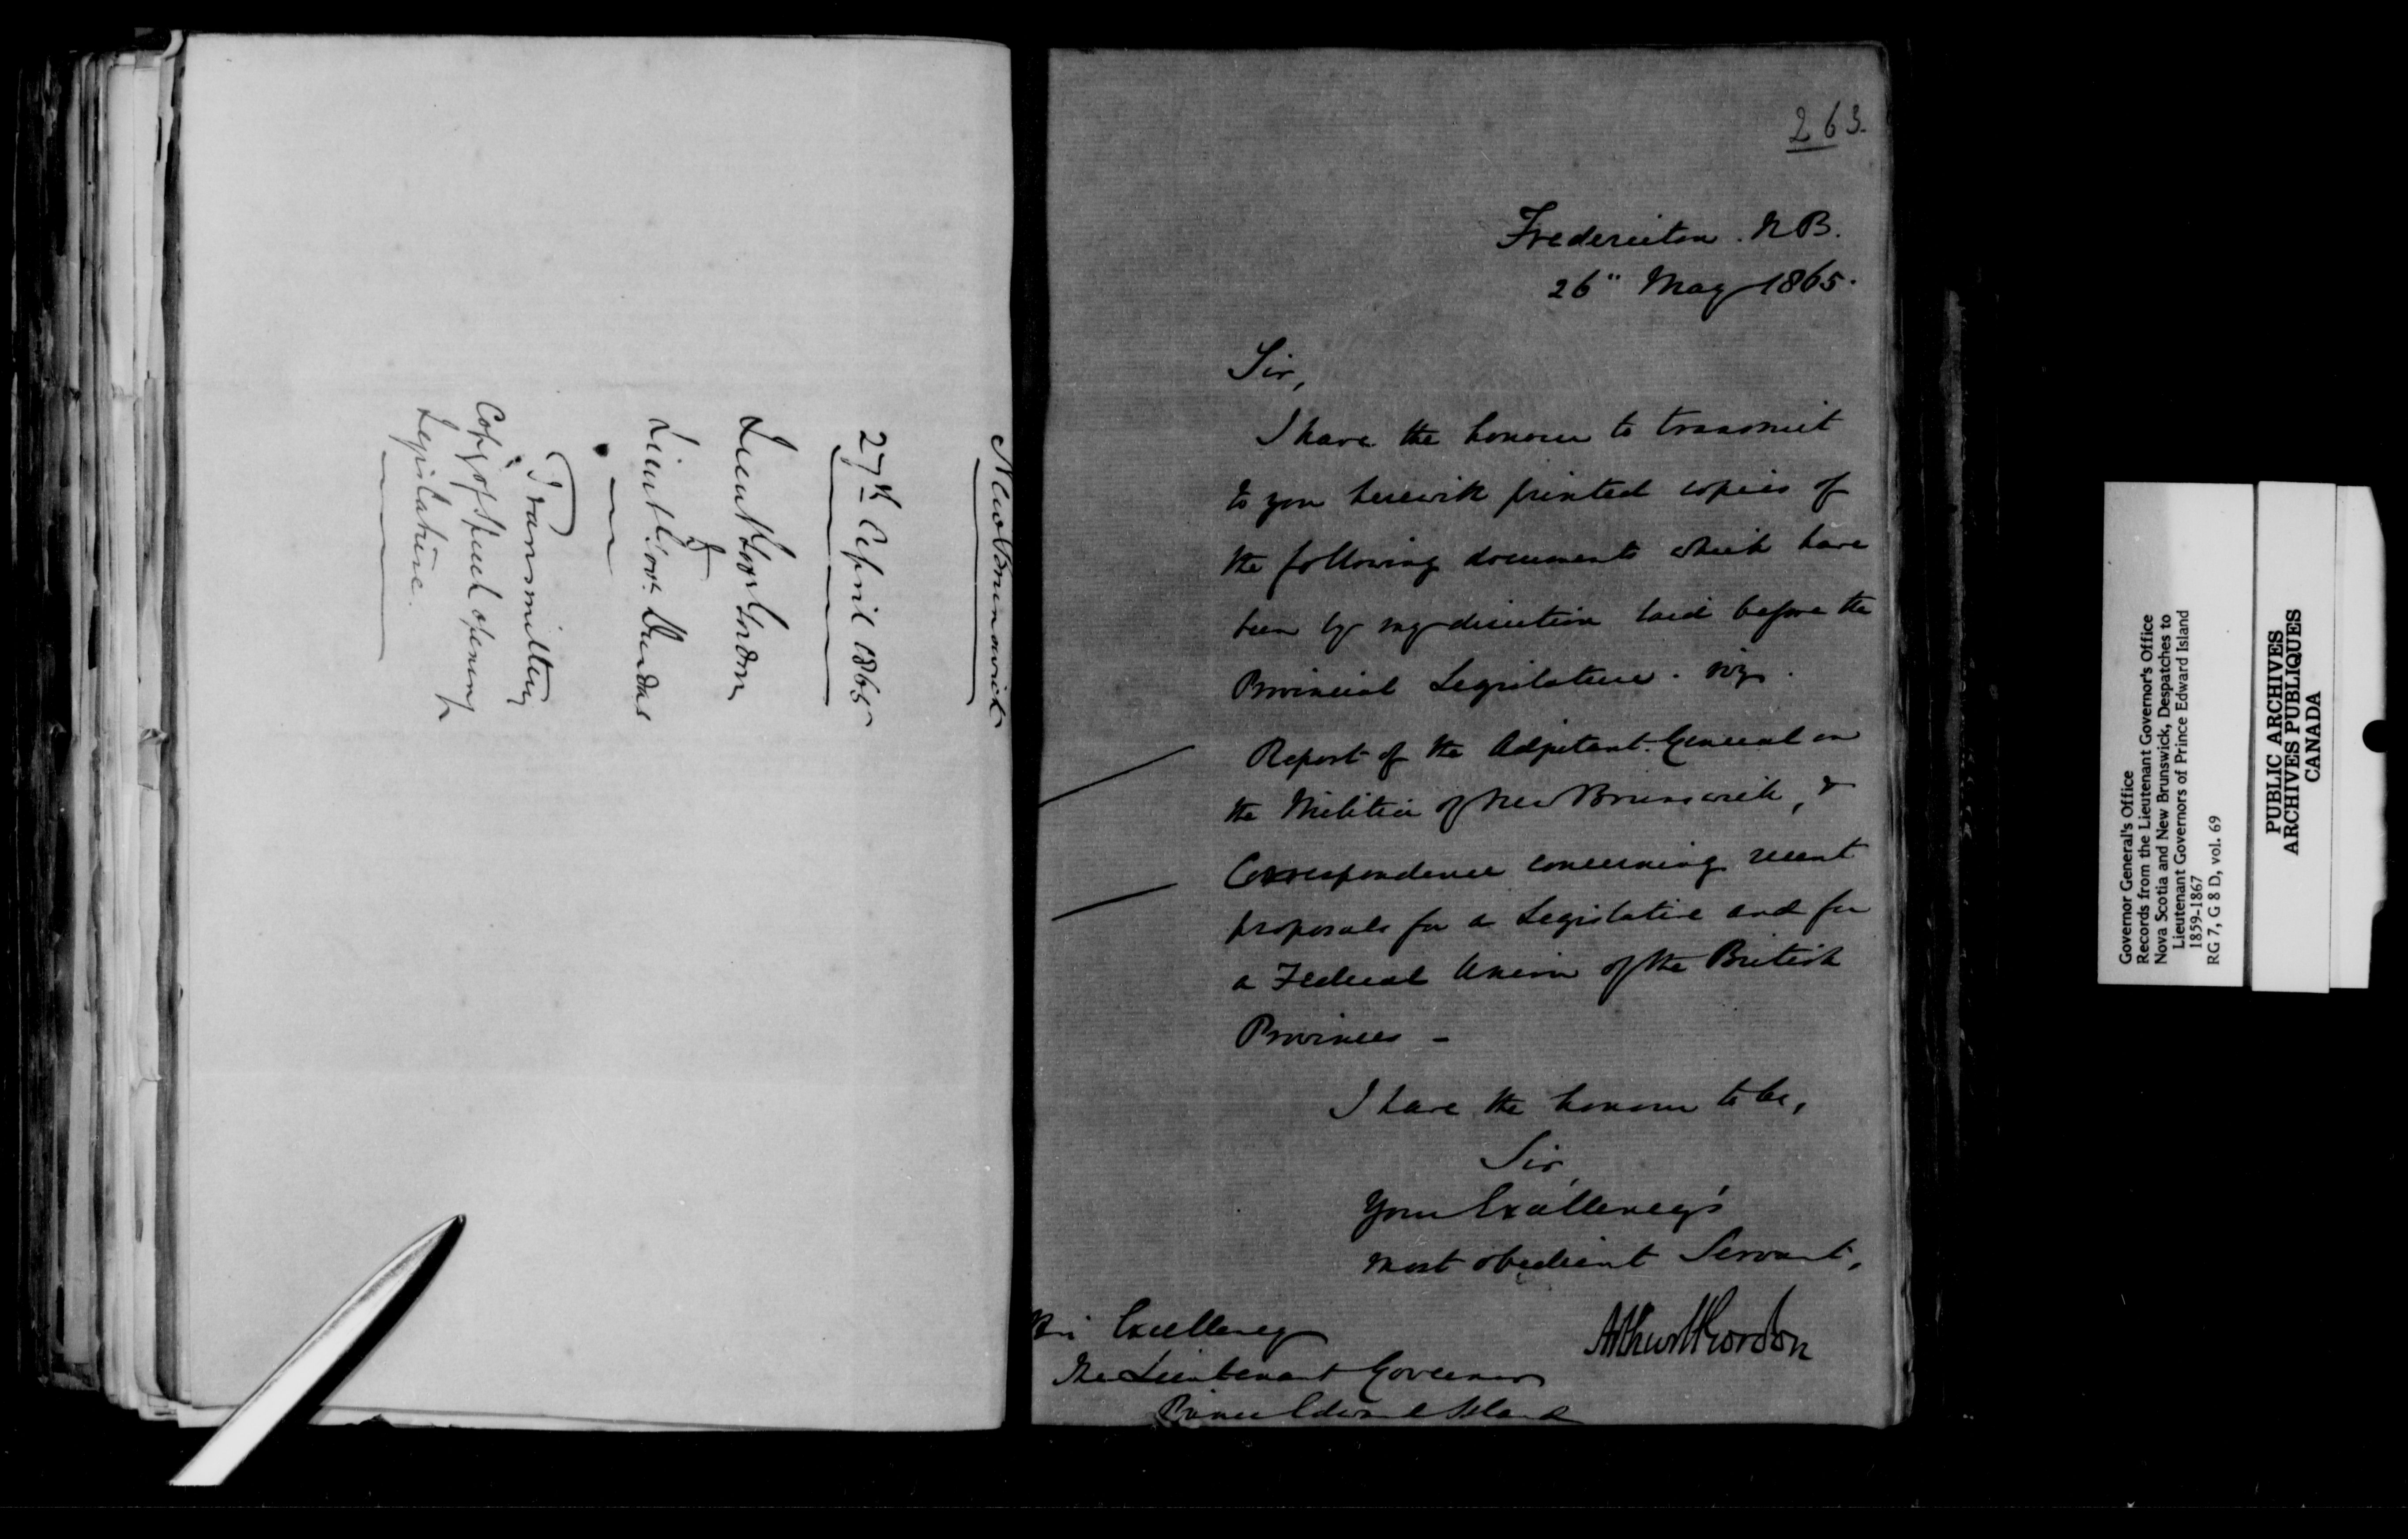 New Brunswick
27th April 1865
Lieut Govr Gordon
to
Lieut Govr Dundas
Transmitting
Copy of Speech opening
Legislature.
263.
Fredericton. N B.
26" May 1865.
Sir,
I have the honour to transmit
to you herewith printed copies of
the following documents which have
been by my direction laid before the
Provincial Legislature. viz.
Report of the Adjutant. General on
the Militia of New Brunswick, &
Correspondence concerning recent
proposals for a Legislative and for
a Federal Union of the British
Provinces -
I have the honour to be,
Sir,
Your Excellency's
most obedient Servant,
Arthur H Gordon
His Excellency
The Lieutenant Governor
Prince Edward Island
Governor General's Office
Records from the Lieutenant Governor's Office
Nova Scotia and New Brunswick, Despatches to
Lieutenant Governors of Prince Edward Island
1859-1867
RG 7, G 8 D, vol. 69
PUBLIC ARCHIVES
ARCHIVES PUBLIQUES
CANADA